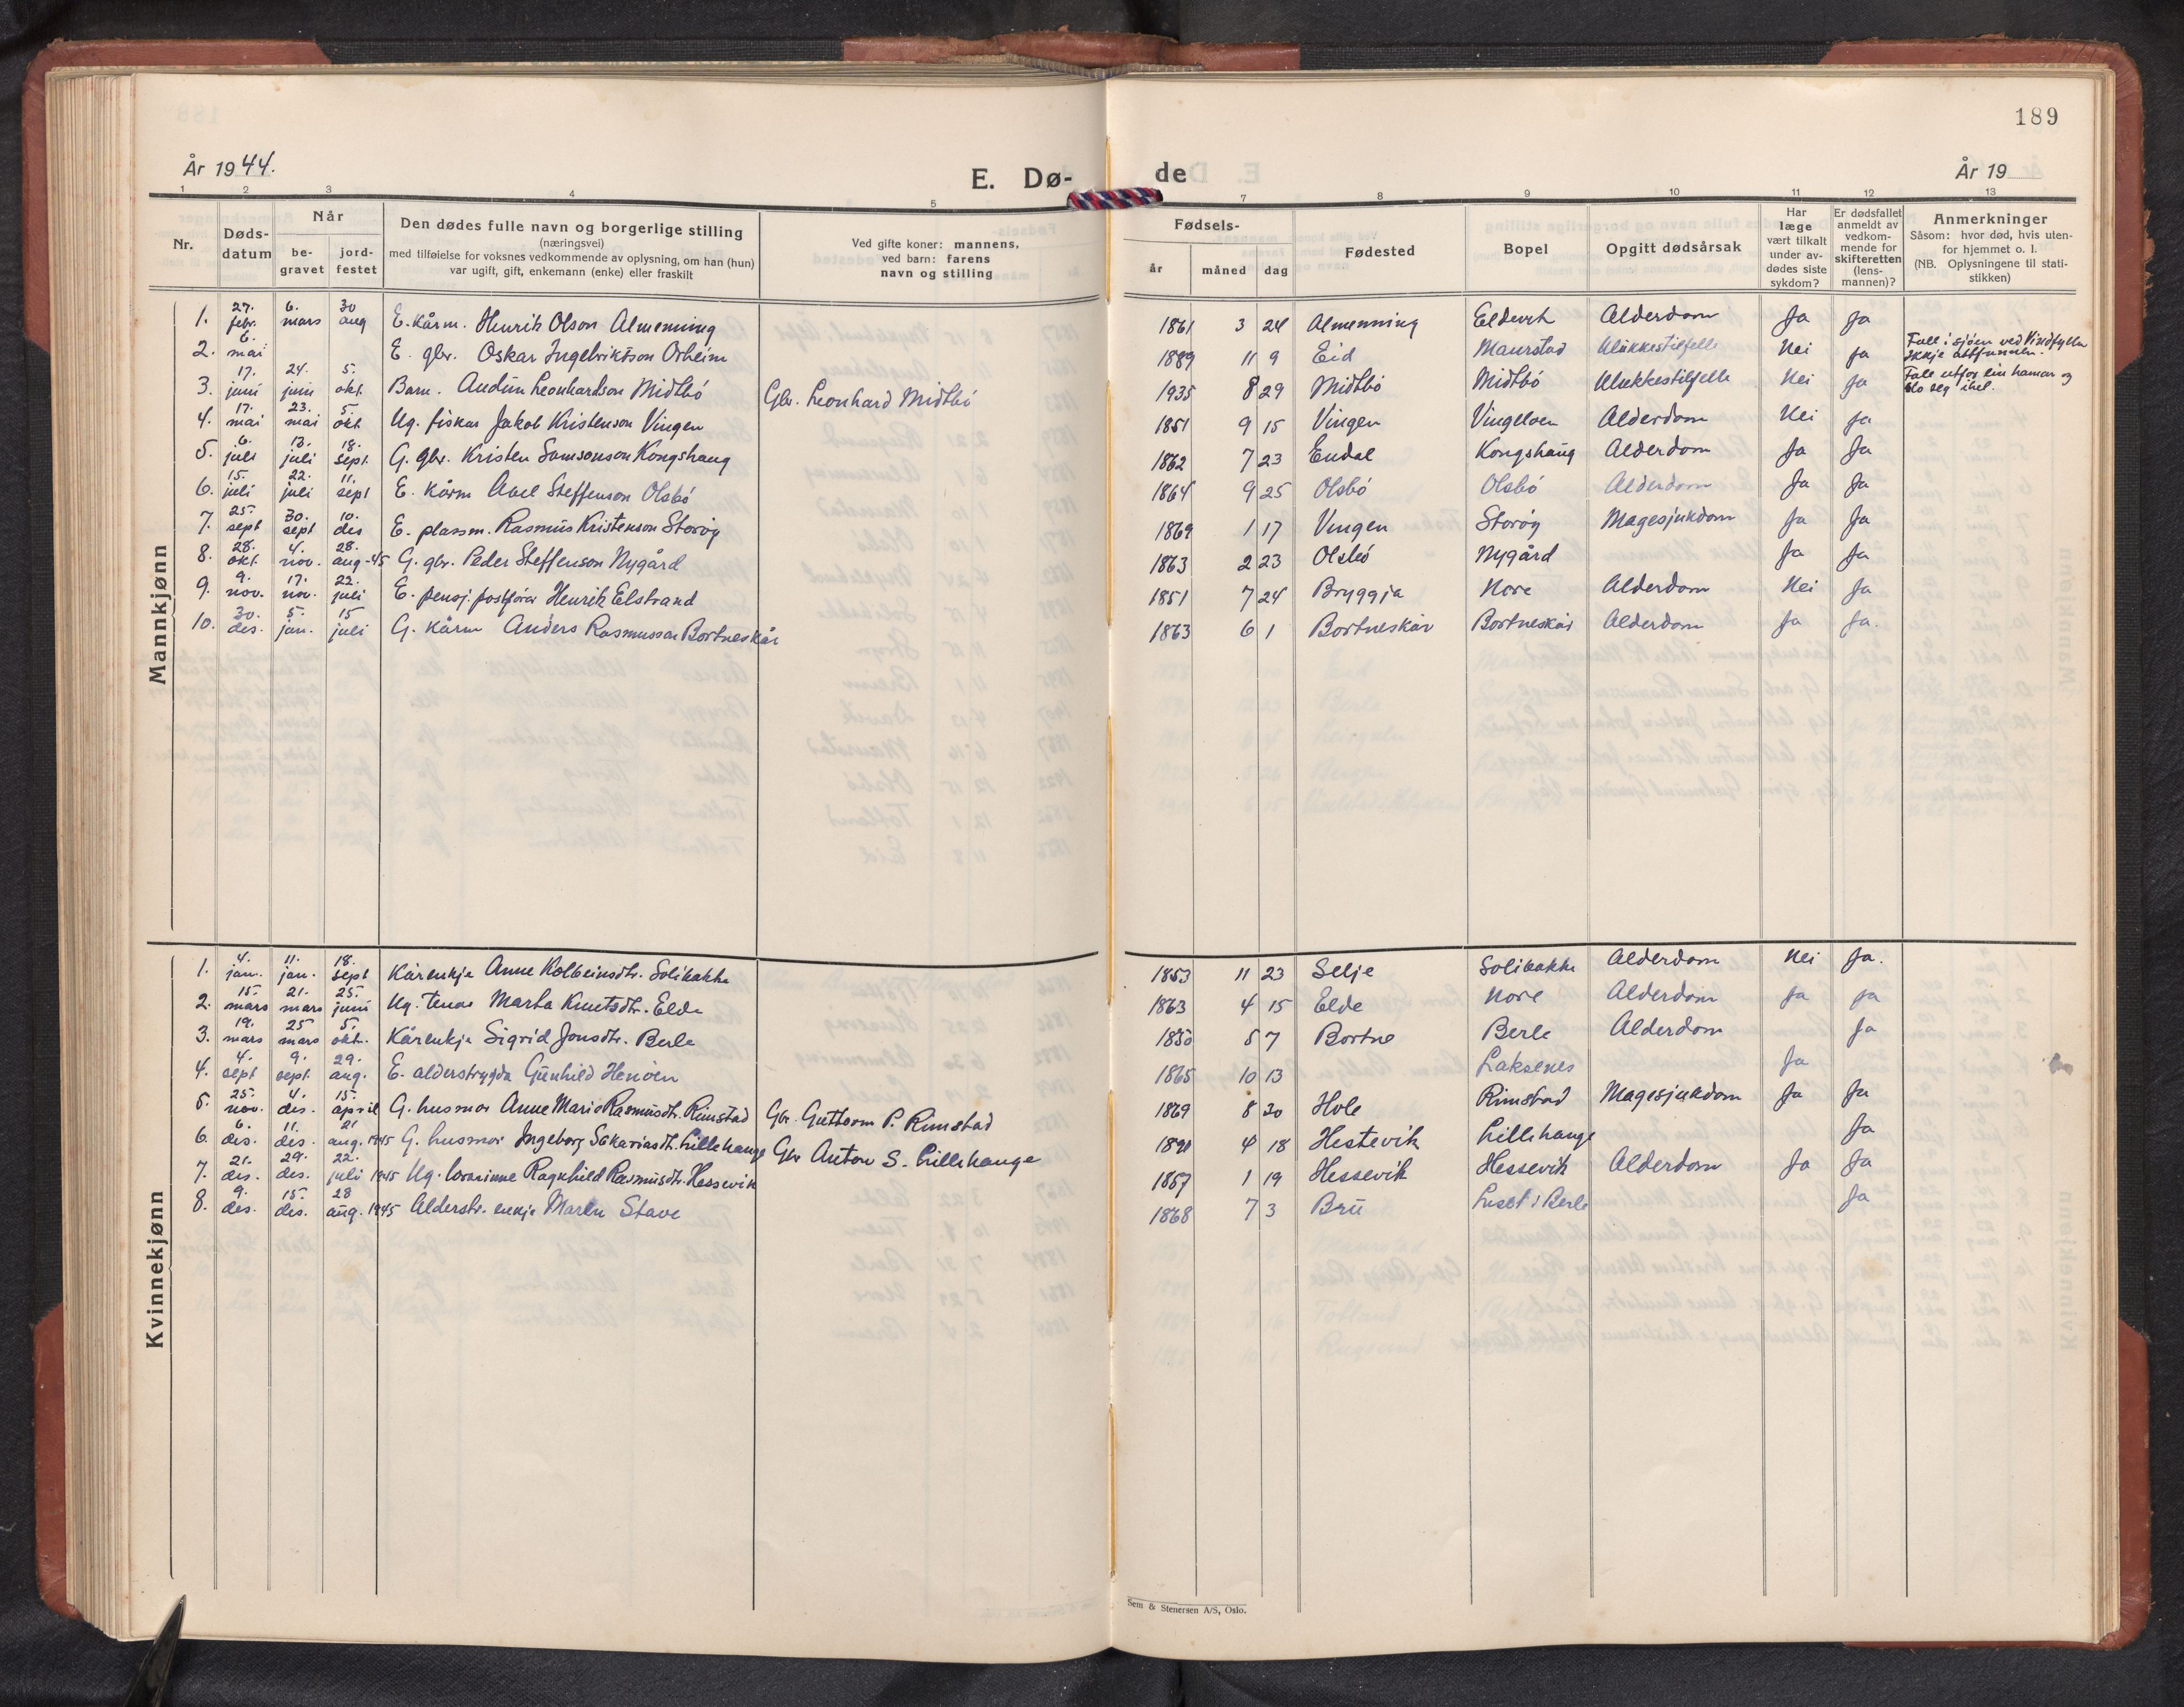 189
År 1944.
E. Dø-
de
År 19
1 2 3 4 5 7 8 9 10 11 12 13
Nr.
Døds-
datum
Når
be-
gravet
jord-
festet
Den dødes fulle navn og borgerlige stilling
(næringsvei)
med tilføielse for voksnes vedkommende av oplysning, om han (hun)
var ugift, gift, enkemann (enke) eller fraskilt
Ved gifte koner: mannens,
ved barn: farens
navn og stilling
Fødsels-
år måned dag
Fødested
Bopel
Opgitt dødsårsak
Har
læge
vært tilkalt
under av-
dødes siste
sykdom?
Er dødsfallet
anmeldt av
vedkom-
mende for
skifteretten
(lens-
mannen)?
Anmerkninger
Såsom: hvor død, hvis uten-
for hjemmet o. l.
(NB. Oplysningene til stati-
stikken)
Mannkjønn
1. 27. febr. 6. mars 30 aug E. kårm. Henrik Olson Almenning 1861 3 24 Almenning Eldevik Alderdom Ja Ja
2. 6. mai E. gbr. Oskar Ingebriktson Orheim 1889 11 9 Eid Maurstad Ulukkestilfelle Nei Ja Fall i sjøen ved Vindfylla Ikkje attfunnen.
3. 17. juni 24. juni 5. okt. Barn. Audun Leonhardson Midtbö Gbr. Leonhard Midtbö 1935 8 29 Midtbö Midtbö Ulukkestilfelle Nei Ja Fall utfor ein hamar og slo seg ihel.
4. 17. mai 23. mai 5. okt Ug. fiskar Jakob Kristenson Vingen 1851 9 15 Vingen Vingelven Alderdom Nei Ja
5. 6. juli 13. juli 18. sept. G. gbr. Kristen Samsonson Kongshaug 1862 7 23 Endal Kongshaug Alderdom Ja Ja
6. 15. juli 22. juli 11. sept E. kårm Abel Steffenson Olsbö 1864 9 25 Olsbö Olsbö Alderdom Ja Ja
7. 25. sept 30. sept 10. des E. plassm. Rasmus Kristenson Storöy 1869 1 17 Vingen Storöy Magesjukdom Ja Ja
8. 28. okt. 4. nov. 28. aug-45 G. gbr. Peder Steffenson Nygård 1863 2 23 Olsbö Nygård Ja Ja
9. 9. nov. 17. nov. 22. juli E. pensj. postförar Henrik Elstrand 1851 7 24 Bryggja Nore Alderdom Nei Ja
10. 30. des. 5. jan. 15 juli G. kårm Anders Rasmusson Bortneskår 1863 6 1 Bortneskår Bortneskår Alderdom Ja Ja.
Kvinnekjønn
1. 4. jan. 11. jan. 18. sept Kårenkje Anne Kolbeinsdtr. Solibakke 1853 11 23 Selje Solibakke Alderdom Nei Ja.
2. 15. mars 21. mars 25. juni Ug. tenar Marta Knutsdtr. Elde 1863 4 15 Elde Nore Alderdom Ja Ja
3. 19. mars 25 mars 5. okt. Kårenkje Sigrid Jonsdtr. Berle 1850 5 7 Bortne Berle Alderdom Ja
4. 4. sept 9. sept. 29. aug. E. alderstrygda Gunhild Henöen 1865 10 13 Laksenes Ja
5. 25. nov. 4. des. 15. april G. husmor Anne Marie Rasmusdtr. Rimstad Gbr. Guttorm P. Rimstad 1869 8 20 Hole Rimstad Magesjukdom Ja Ja
6. 6. des. 11. des. 21 aug. 1945 G. husmor Ingeborg Sakariasdtr. Lillehauge Gbr Anton S. Lillehauge 1890 4 18 Hestevik Lillehauge Ja
7. 21. des. 29. des. 22. juli 1945 Ug. lorarinne Ragnhild Rasmusdtr. Hessevik 1857 1 19 Hessevik Hessevik Alderdom Ja Ja
8. 9. des. 15. des. 28 aug. 1945 Alderstr. enkje Maren Stave 1868 7 3 Bru Berle Ja
Sem & Stenersen A/S, Oslo.